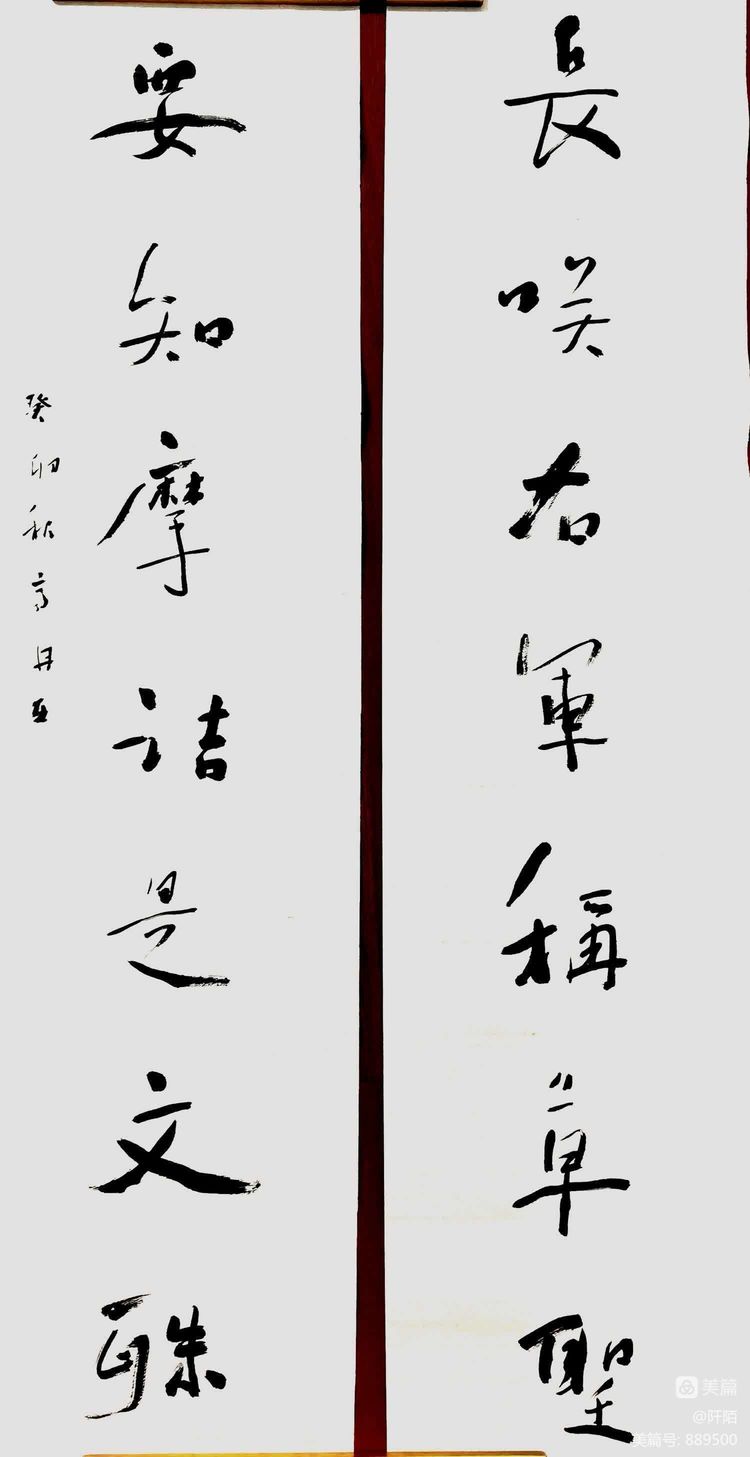 長咲右軍稱草聖
要知摩詰是文殊
癸卯秋
美篇
@阡陌
美篇号: 889500